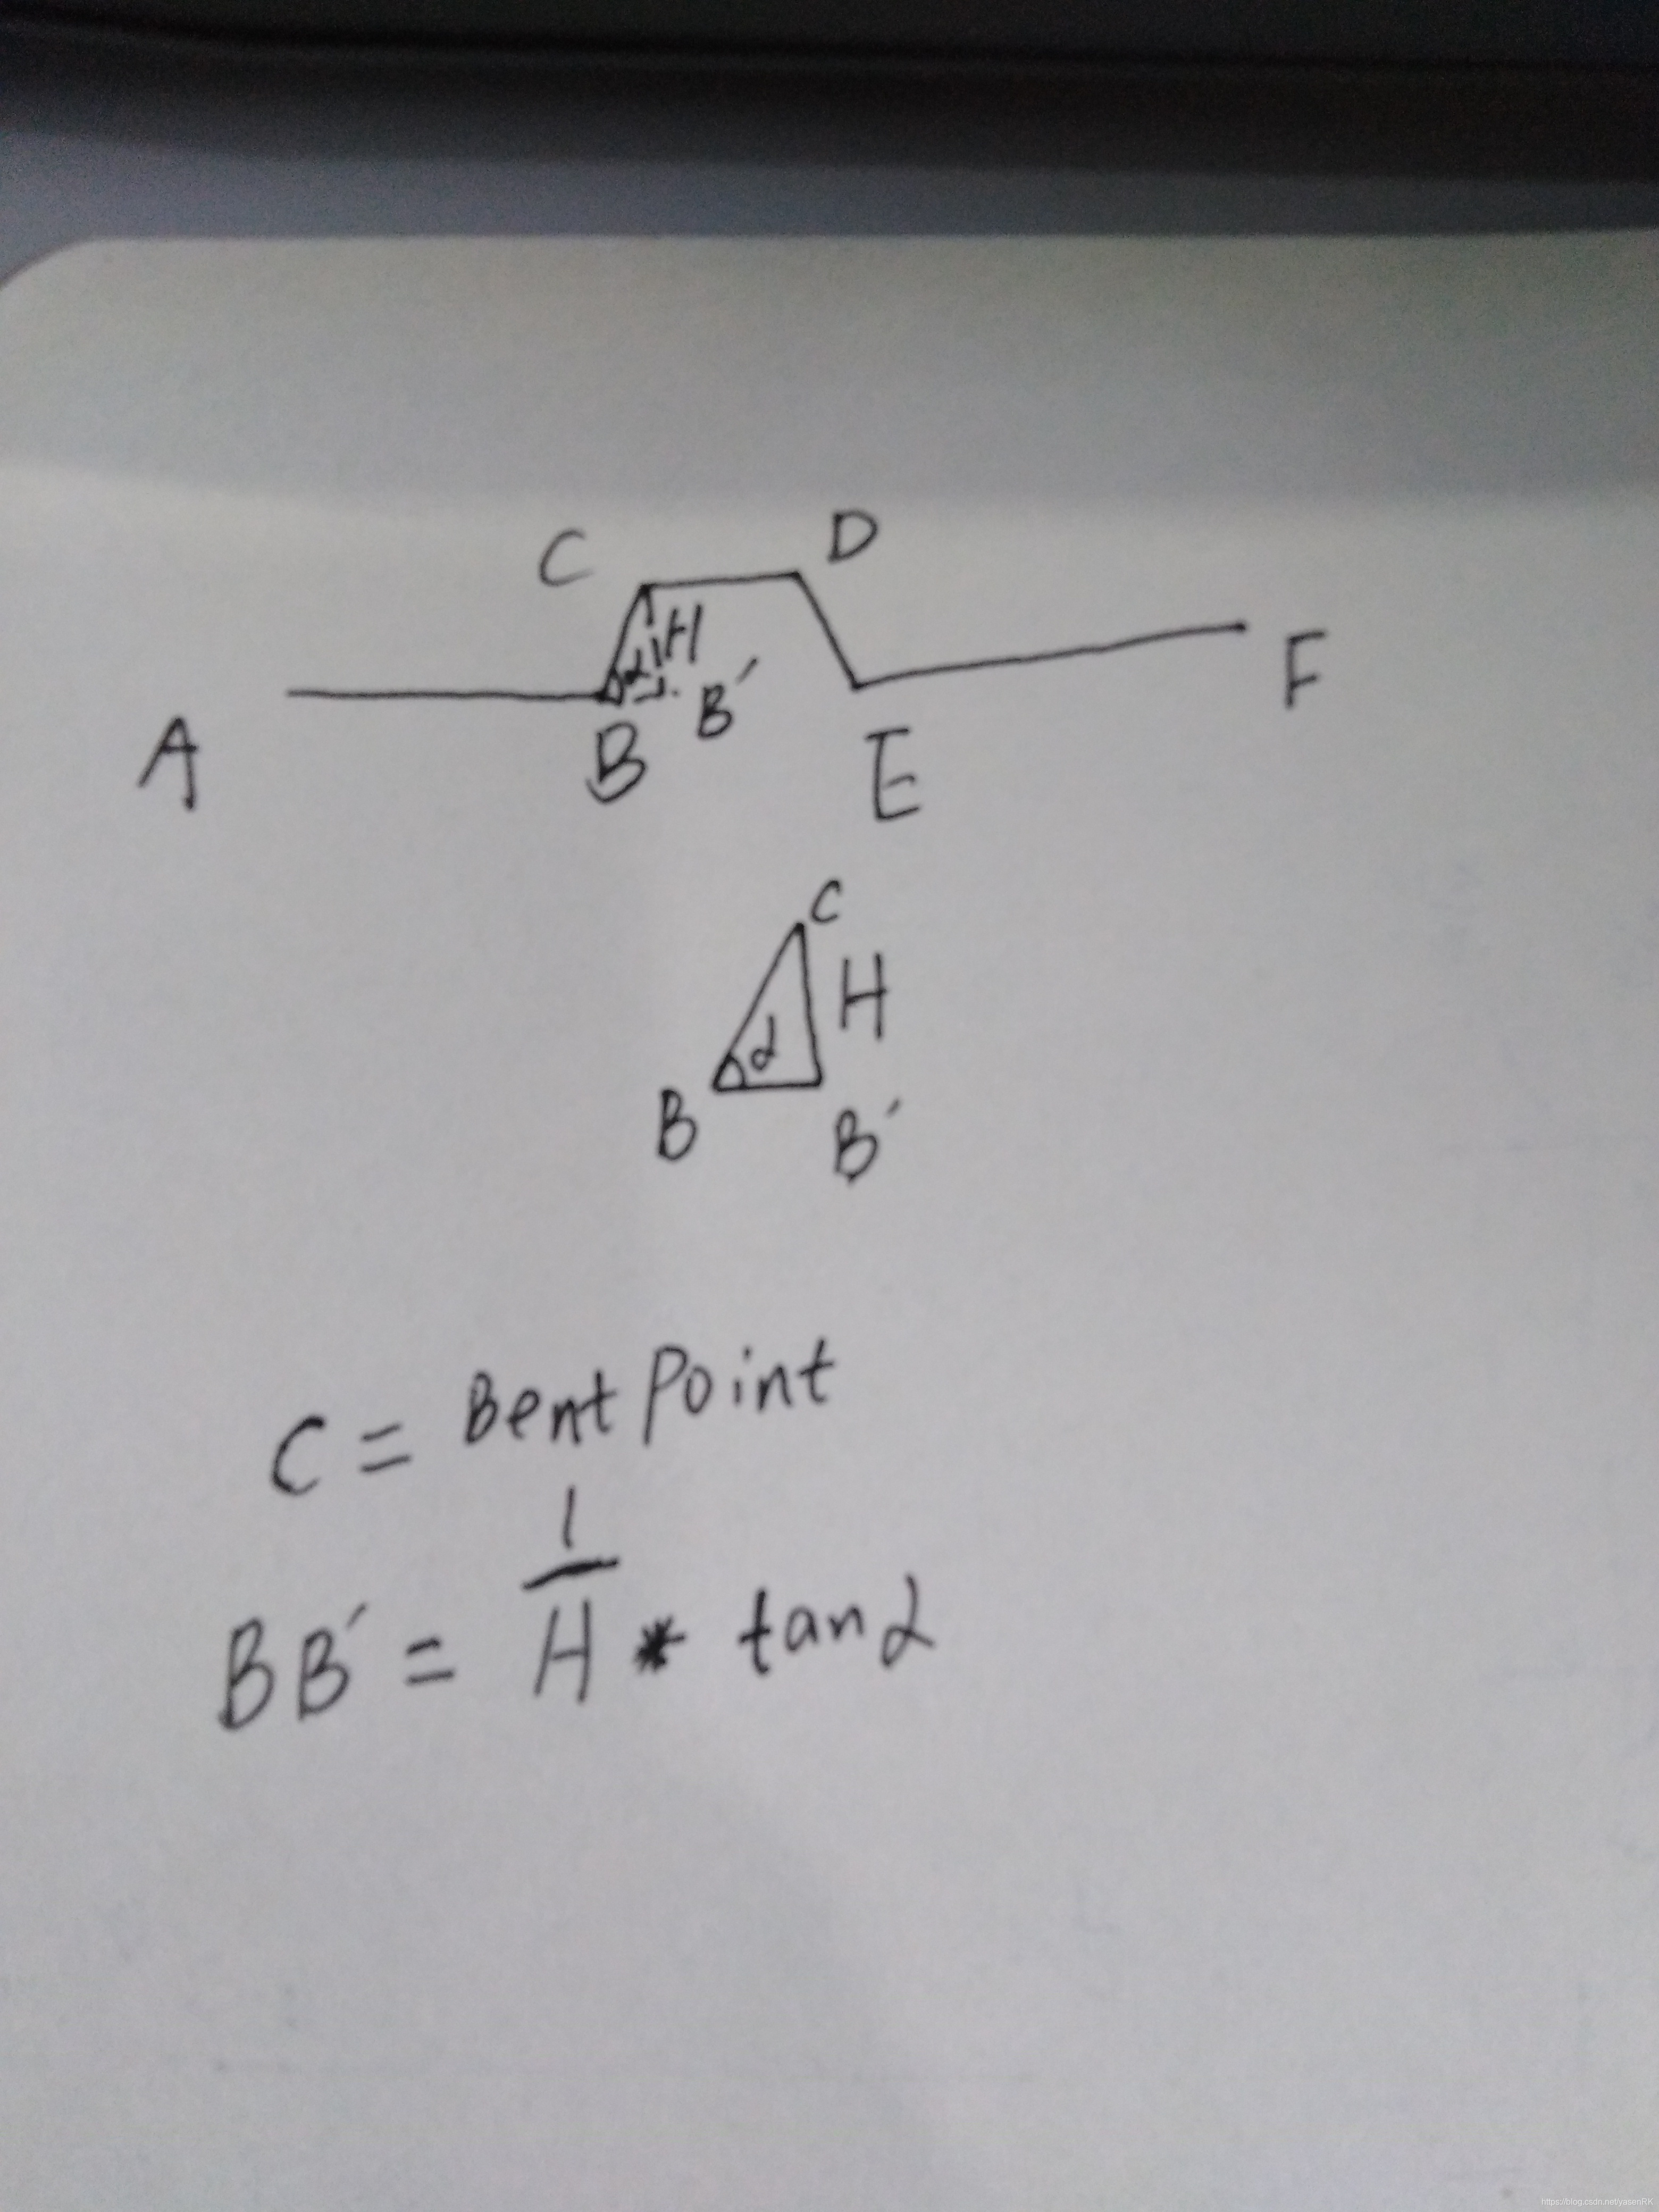 C D
H
α
A B B′ E F
C
H
α
B B′
C = Bent Point
BB′ = 1/H * tanα
https://blog.csdn.net/yasenRK